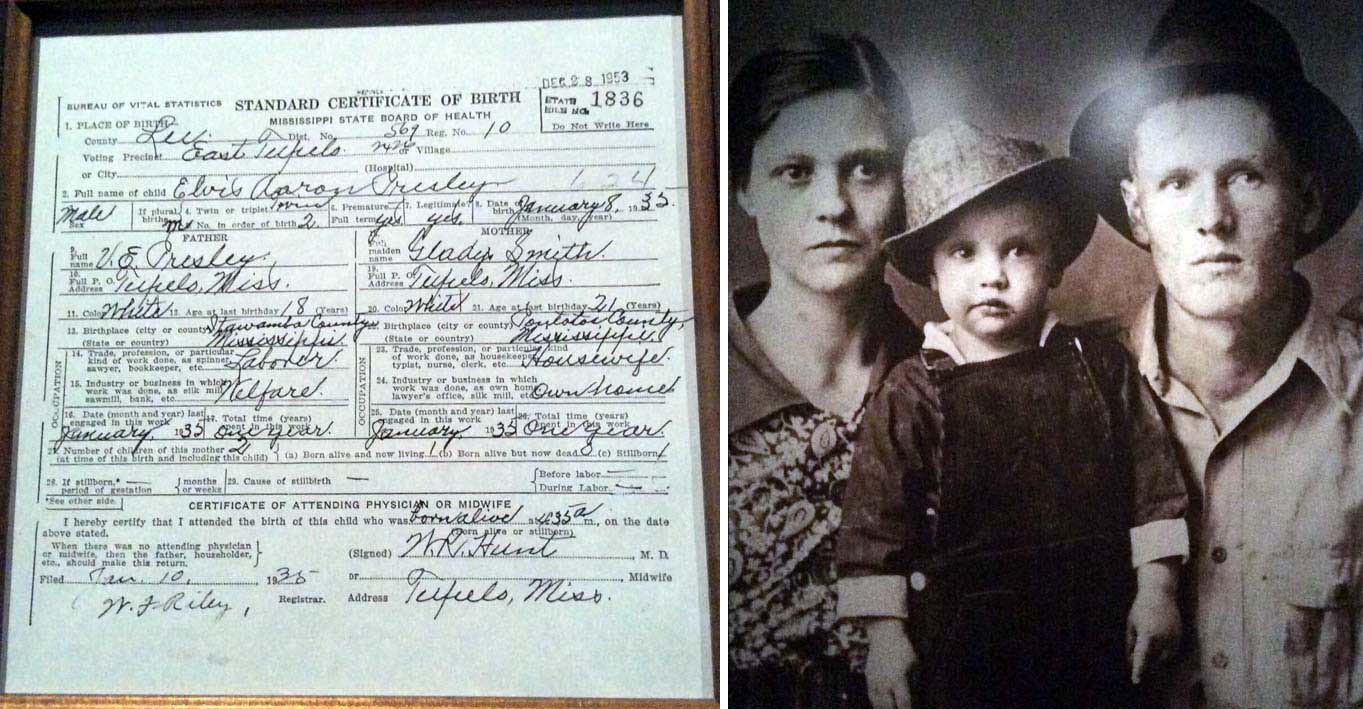 DEC 28 1953
BUREAU OF VITAL STATISTICS STANDARD CERTIFICATE OF BIRTH STATE FILE NO. 1836
MISSISSIPPI STATE BOARD OF HEALTH Do Not Write Here
1. PLACE OF BIRTH
County Lee Dist. No. 569 Reg. No. 10
Voting Precinct East Tupelo or Village
or City (Hospital)
2. Full name of child Elvis Aaron Presley
Male Sex If plural births 4. Twin or triplet Twin 6. Premature 7. Legitimate? 8. Date of birth January 8, 1935.
No. in order of birth 2 Full term yes yes. (Month, day, year)
FATHER MOTHER
9. Full name V. E. Presley Full maiden name Gladys Smith.
10. Full P. O. Address Tupelo, Miss. 19. Full P. O. Address Tupelo, Miss.
11. Color White 12. Age at last birthday 18 (Years) 20. Color White 21. Age at last birthday 21 (Years)
13. Birthplace (city or county) Itawamba County Birthplace (city or county) Pontotoc County,
(State or country) Mississippi (State or country) Mississippi.
OCCUPATION
14. Trade, profession, or particular kind of work done, as spinner, sawyer, bookkeeper, etc. Laborer
15. Industry or business in which work was done, as silk mill, sawmill, bank, etc. Welfare.
16. Date (month and year) last engaged in this work January, 1935 17. Total time (years) spent in this work one year.
OCCUPATION
23. Trade, profession, or particular kind of work done, as housekeeper, typist, nurse, clerk, etc. Housewife.
24. Industry or business in which work was done, as own home, lawyer's office, silk mill, etc. Own home
25. Date (month and year) last engaged in this work January, 1935 26. Total time (years) spent in this work One year.
27. Number of children of this mother 2 (at time of this birth and including this child) (a) Born alive and now living 1 (b) Born alive but now dead (c) Stillborn 1
28. If stillborn,* — period of gestation months or weeks 29. Cause of stillbirth — Before labor —
During Labor —
*See other side.
CERTIFICATE OF ATTENDING PHYSICIAN OR MIDWIFE
I hereby certify that I attended the birth of this child who was born alive at 4:35 a m., on the date
above stated. (Born alive or stillborn)
When there was no attending physician
or midwife, then the father, householder, (Signed) W. R. Hunt, M. D.
etc., should make this return.
Filed Jan. 10, 1935 or Midwife
W. F. Riley, Registrar. Address Tupelo, Miss.